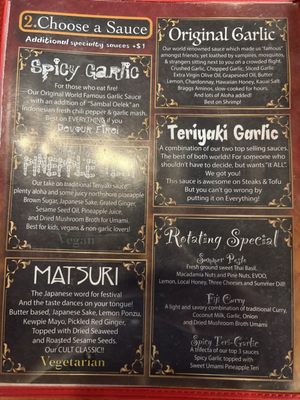 2. Choose a Sauce
Additional specialty sauces +$1
Spicy Garlic
For those who eat fire!
Our Original World Famous Garlic Sauce
with an addition of "Sambal Oelek" an
Indonesian fresh chili pepper & garlic mash.
Best on EVERYTHING if you
Devour Fire!
Our take on traditional Teriyaki sauce
plenty aloha and some juicy northshore pineapple
Brown Sugar, Japanese Sake, Grated Ginger,
Sesame Seed Oil, Pineapple Juice,
and Dried Mushroom Broth for Umami.
Best for kids, vegans & non garlic lovers!
Vegan
MATSURI
The Japanese word for festival
And the taste dances on your tongue!
Butter based, Japanese Sake, Lemon Ponzu,
Kewpie Mayo, Pickled Red Ginger,
Topped with Dried Seaweed
and Roasted Sesame Seeds.
Our CULT CLASSIC!!
Vegetarian
Original Garlic
Our world renowned sauce which made us "famous"
amongst friends, yet loathed by vampires, mosquitos,
& strangers sitting next to you on a crowded flight.
Crushed Garlic, Chopped Garlic, Sliced Garlic
Extra Virgin Olive Oil, Grapeseed Oil, Butter
Lemon, Chardonnay, Hawaiian Honey, Kauai Salt
Braggs Aminos, slow-cooked for hours.
And lots of Aloha added!
Best on Shrimp!
Teriyaki Garlic
A combination of our two top selling sauces.
The best of both worlds! For someone who
shouldn't have to decide, but wants "it ALL".
We got you!
This sauce is awesome on Steaks & Tofu
But you can't go wrong by
putting it on Everything!
Rotating Special
Summer Pesto
Fresh ground sweet Thai Basil,
Macadamia Nuts and Pine Nuts, EVOO,
Lemon, Local Honey, Three Cheeses and Summer Dill!
Fiji Curry
A light and savory combination of traditional Curry,
Coconut Milk, Garlic, Onion
and Dried Mushroom Broth Umami
Spicy Teri-Garlic
A trifecta of our top 3 sauces
Spicy Garlic topped with
Sweet Umami Pineapple Teri